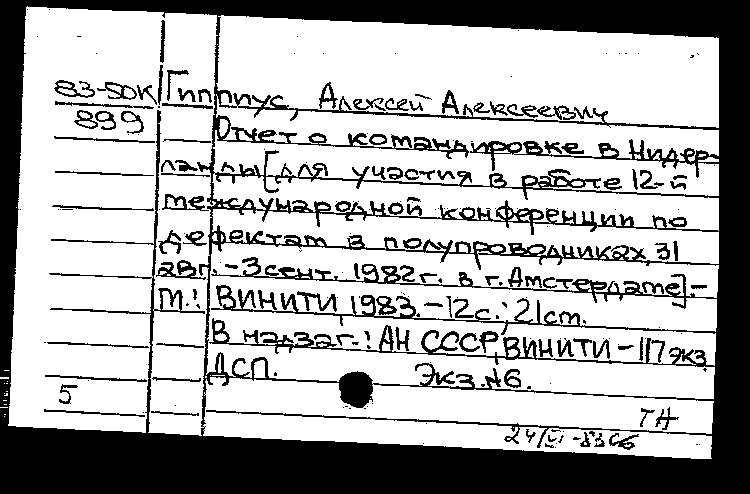 83-50К Гиппиус, Алексей Алексеевич
899 Отчет о командировке в Нидер-
ланды [для участия в работе 12-й
международной конференции по
дефектам в полупроводниках, 31
авг. - 3 сент. 1982 г. в г. Амстердаме]. -
М.: ВИНИТИ, 1983. - 12 с.; 21 cm.
В надзаг.: АН СССР, ВИНИТИ - 117 экз.
ДСП. Экз. №6.
5
ТН
24/VI -83